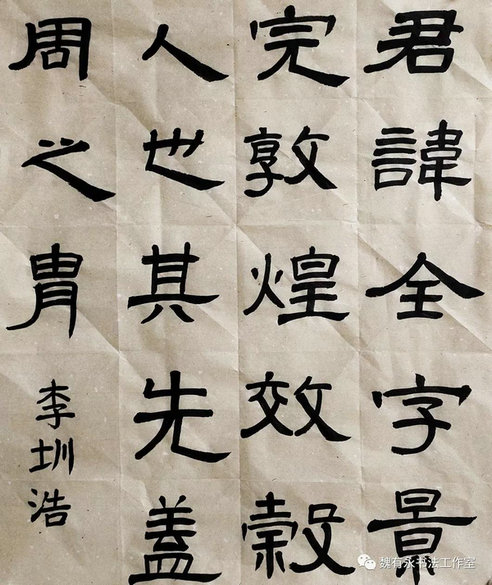 君諱全字景
完敦煌效穀
人也其先蓋
周之胄
李圳浩
魏有永书法工作室